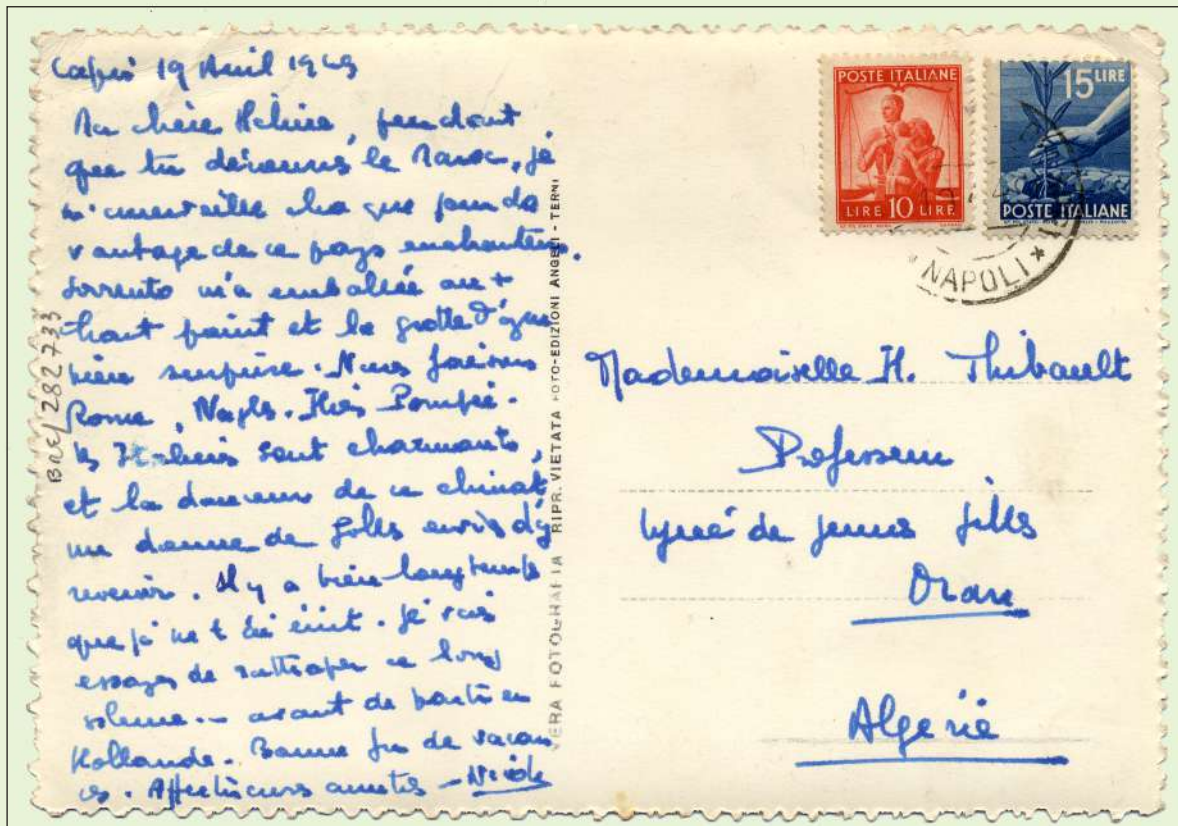 Capri 19 Avril 1949
Ma chère Hélène, pendant
que tu découvres le Maroc, je
m'émerveille chaque jour da
vantage de ce pays enchanteur.
Sorrento m'a emballée au +
haut point et la grotte d'azur
bien surprise. Nous faisons
Rome, Naples. Hier Pompéi.
Les Italiens sont charmants,
et la douceur de ce climat
me donne de folles envies d'y
revenir. Il y a bien longtemps
que je ne t'ai écrit. Je vais
essayer de rattraper ce long
silence - avant de partir en
Hollande. Bonne fin de vacan
ces. Affectueuses amitiés - Nicole
BRE/282733
VERA FOTOGRAFIA RIPR. VIETATA FOTO-EDIZIONI ANGELI - TERNI
POSTE ITALIANE
LIRE 10 LIRE
15 LIRE
POSTE ITALIANE
NAPOLI
Mademoiselle H. Thibault
Professeur
Lycée de jeunes filles
Oran
Algérie